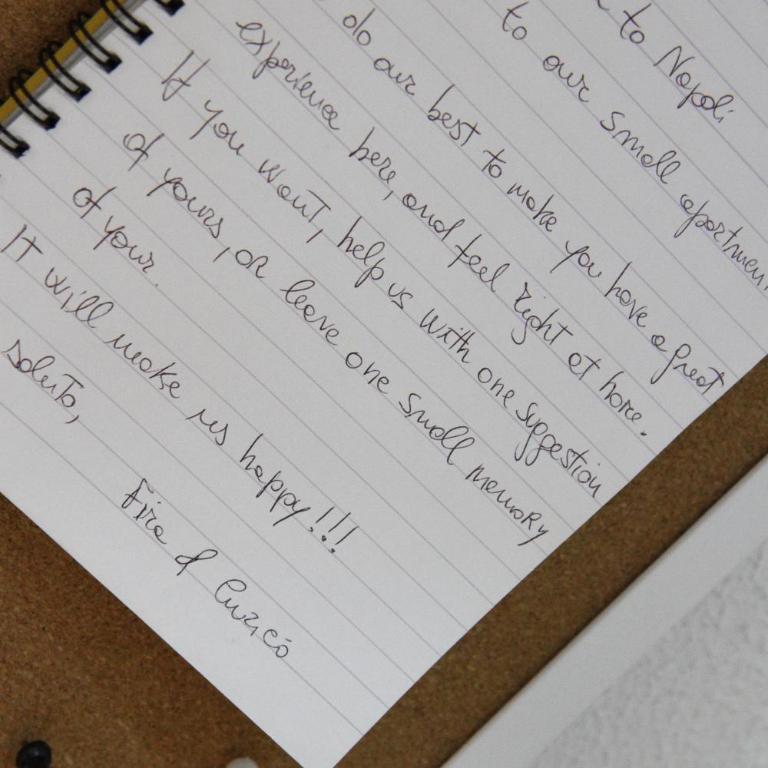 to Napoli
to our small apartment
do our best to make you have a great
experience here, and feel right at home.
If you want, help us with one suggestion
of yours, or leave one small memory
of your.
It will make us happy!!!
saluto,
&